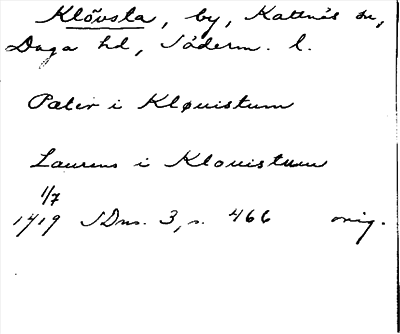 Klövsta, by, Kattnäs sn,
Daga hd, Söderm. l.
Peter i Kløuistum
Laurens i Klouistum
1/7
1419 SDns. 3, s. 466 orig.